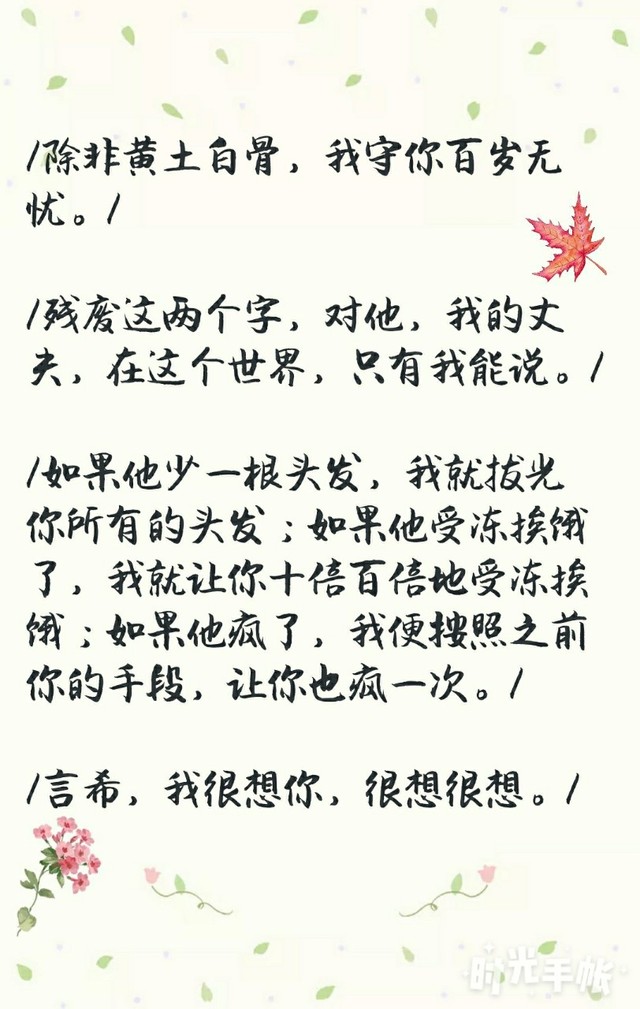 /除非黄土白骨，我守你百岁无
忧。/
/残废这两个字，对他，我的丈
夫，在这个世界，只有我能说。/
/如果他少一根头发，我就拔光
你所有的头发；如果他受冻挨饿
了，我就让你十倍百倍地受冻挨
饿；如果他疯了，我便按照之前
你的手段，让你也疯一次。/
/言希，我很想你，很想很想。/
时光手帐